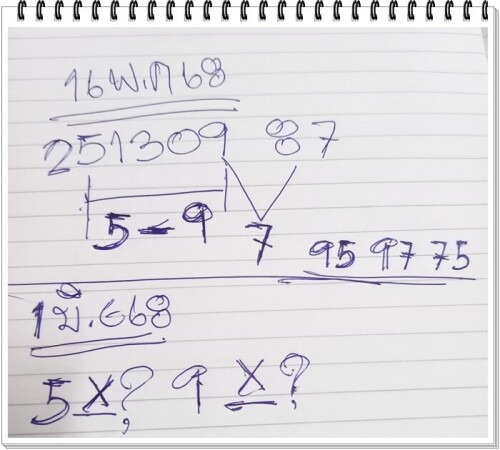 16 พ.ค 68
251309 87
5-9 7 95 97 75
1 มิ.ย 68
5 X ? 9 X ?